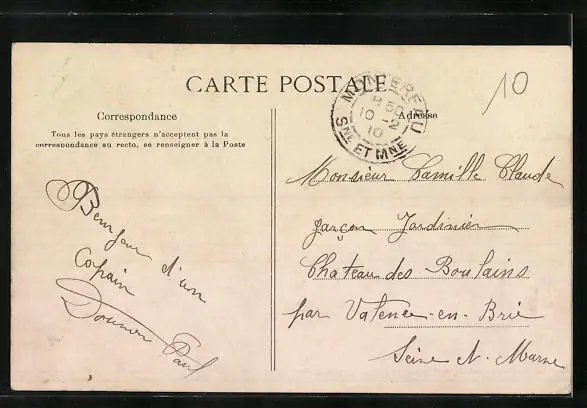 CARTE POSTALE
Correspondance
Tous les pays étrangers n'acceptent pas la
correspondance au recto, se renseigner à la Poste
Adresse
MONTEREAU
8 50
10 - 2
10
SNE ET MNE
10
Bonjour d'un
Copain
Paul
Monsieur Camille Claude
garçon Jardinier
Chateau des Boulains
par Valence-en-Brie
Seine et Marne